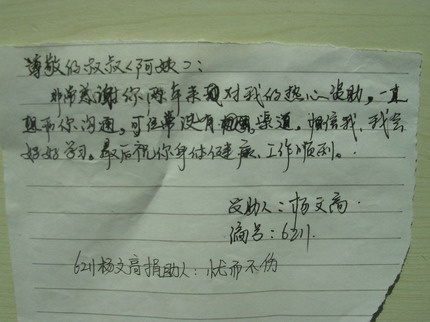 尊敬的叔叔(阿姨):
非常感谢你两年来对我的热心资助,一直
想和你沟通,可经常没有渠道。相信我,我会
好好学习。最后祝你身体健康、工作顺利。
受助人:杨文高
编号:6211
6211杨文高捐助人:忧而不伤